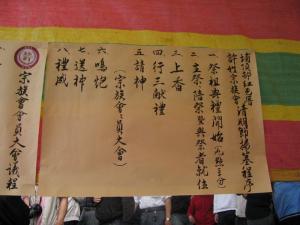 許竹宗族會清明節掃墓程序
一 祭祖典禮開始
二 主祭陪祭暨與祭者就位
三 上香
四 行三献禮
五 請神
(宗族會會員大會)
六 鳴炮
七 送神
八 禮成
宗族會會員大會議程